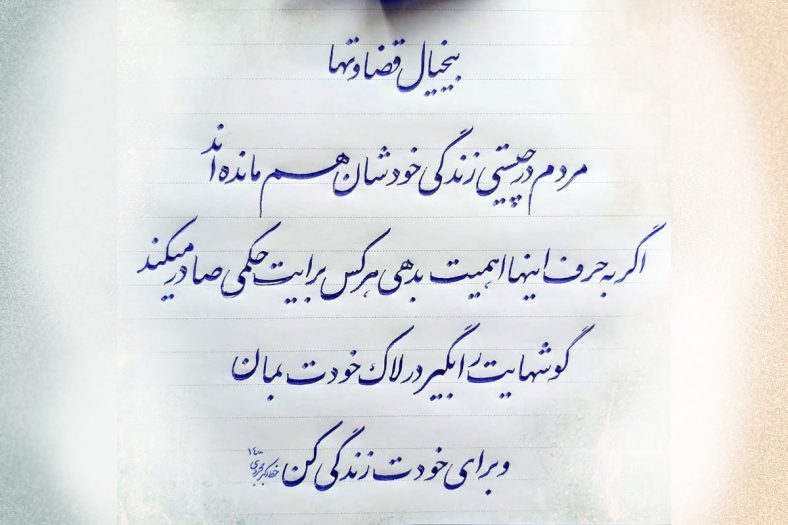 بیخیال قضاوتها
مردم در چیستی زندگی خودشان هم مانده اند
اگر به حرف اینها اهمیت بدهی هرکس برایت حکمی صادر میکند
گوشهایت را بگیر در لاک خودت بمان
و برای خودت زندگی کن